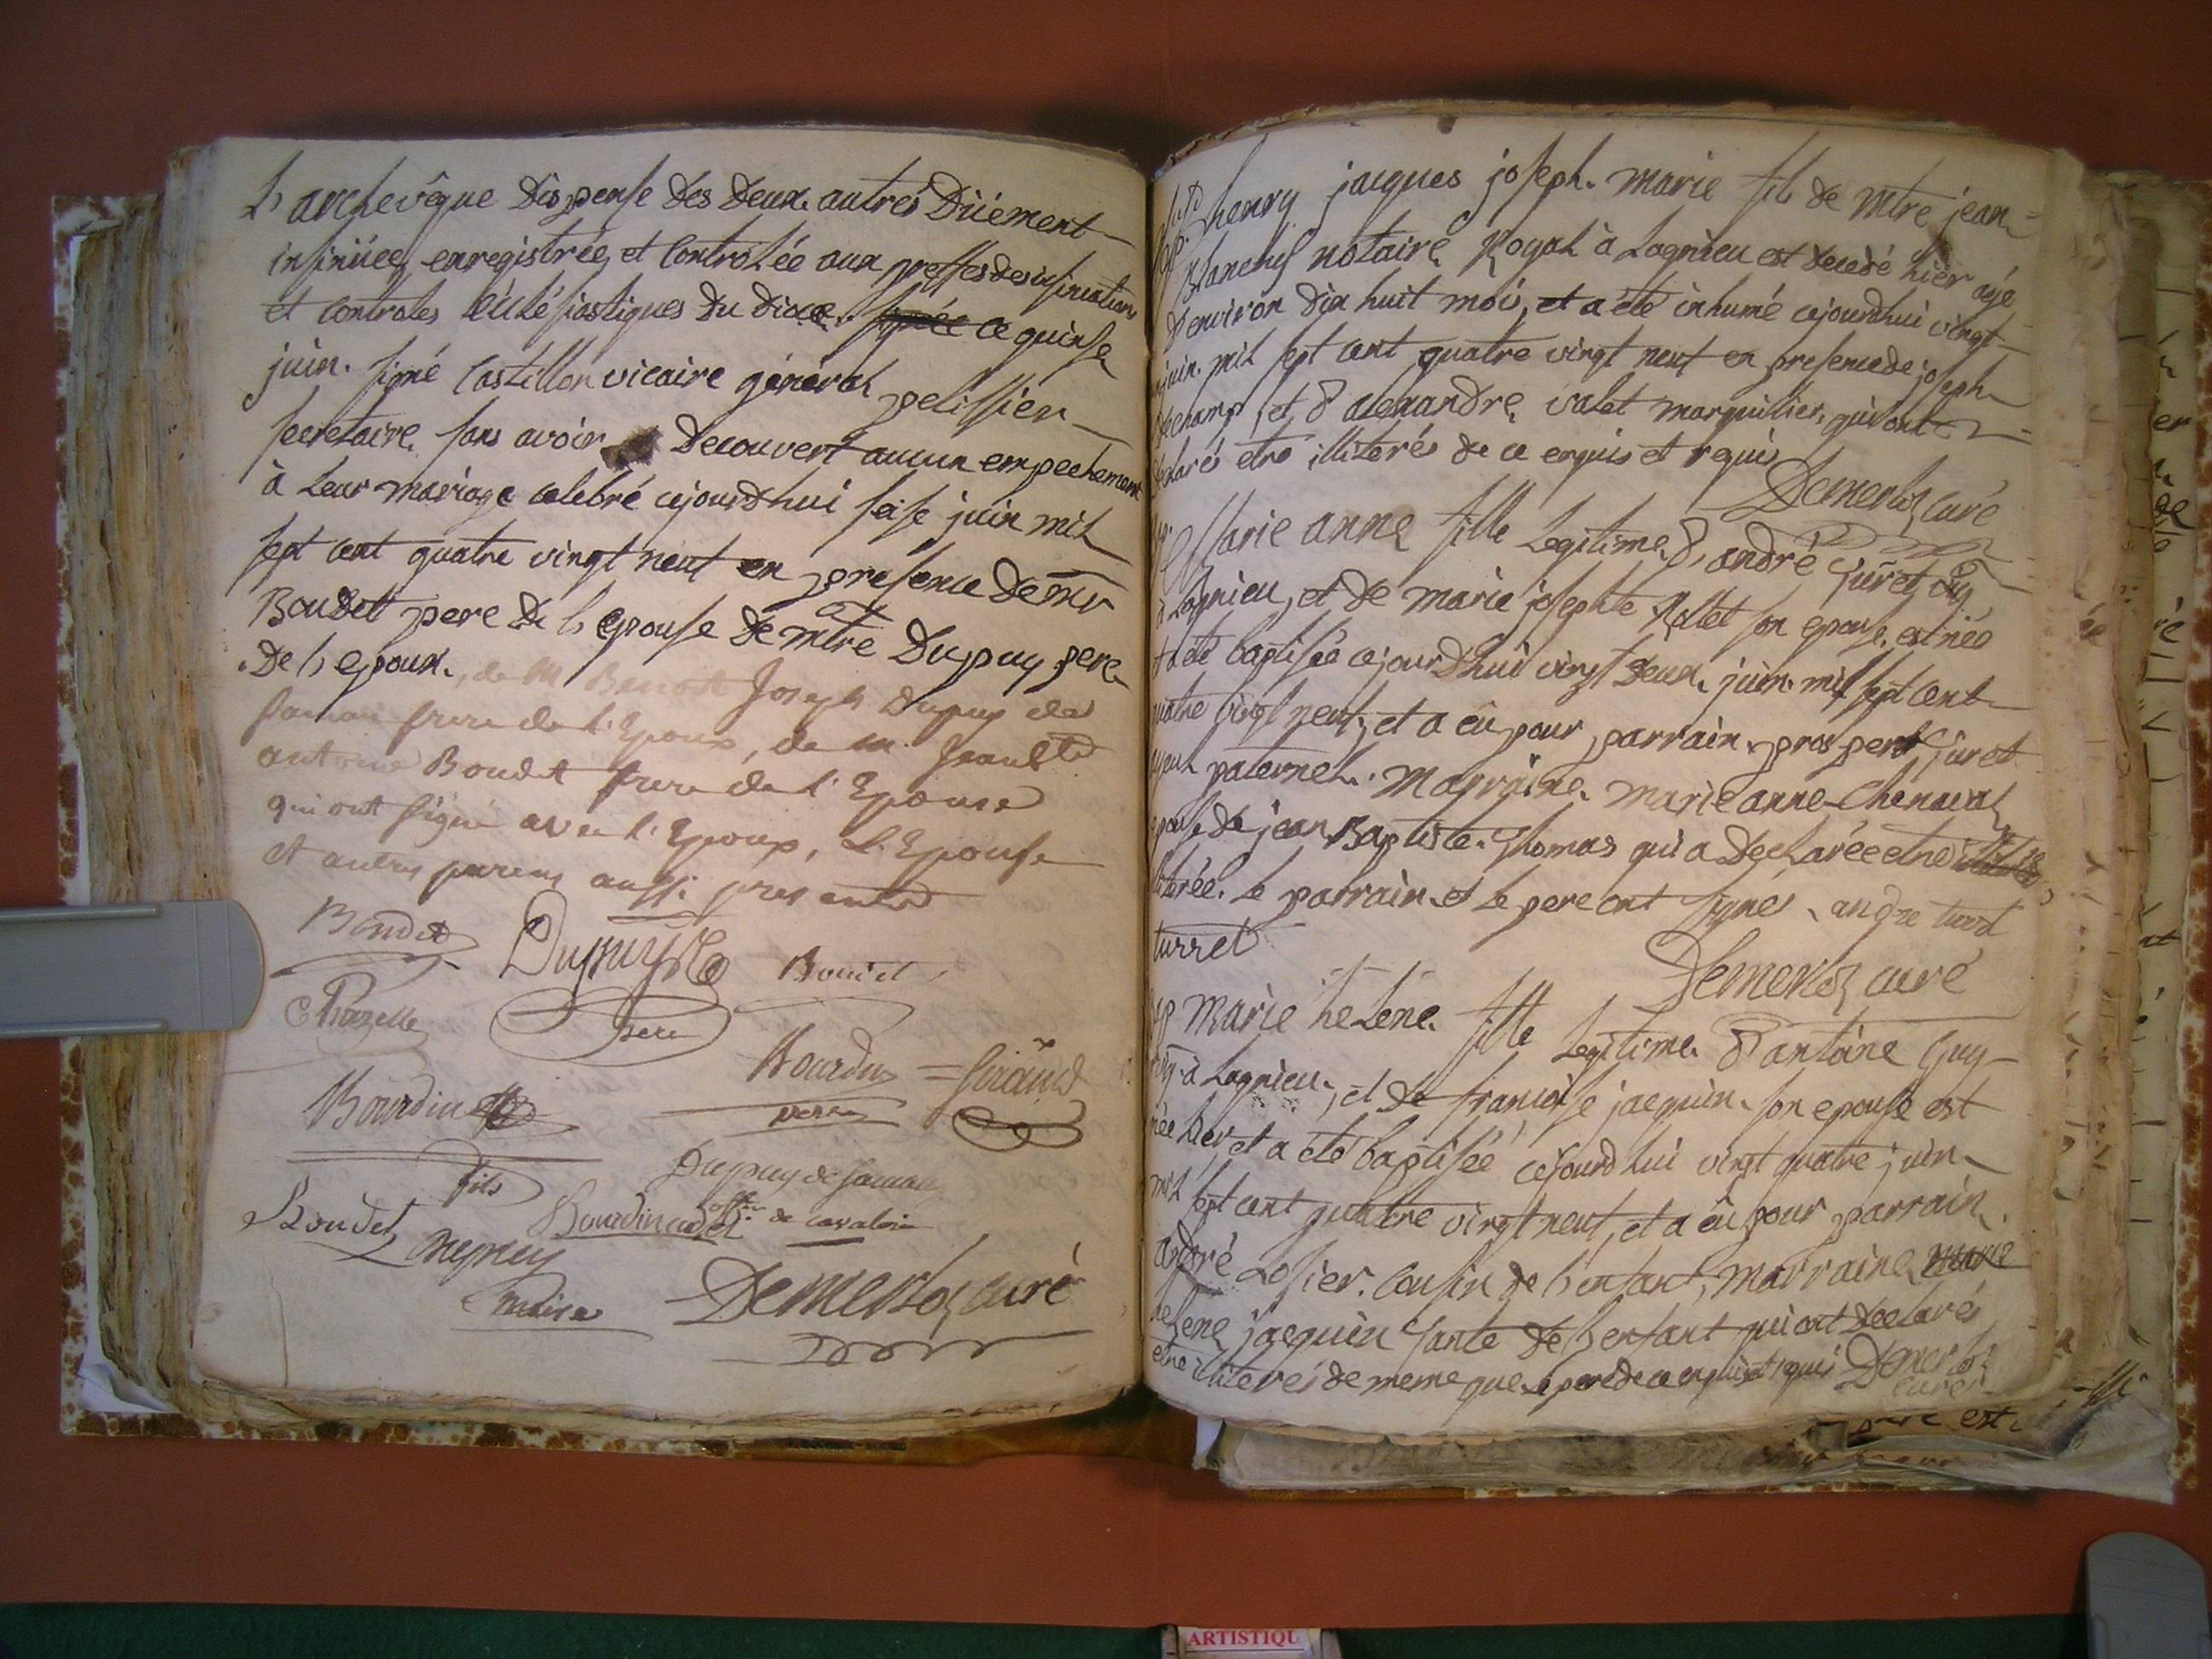 L'archevêque dispense des deux autres dûëment
insinüée, enregistrée, et controlée aux greffes des insinuations
et controles ecclésiastiques du dioce. ce quinse
juin. signé Castillon vicaire général pelissier
secretaire. sans avoir decouvert aucun empechement
à leur mariage celebré cejourdhui seise juin mil
sept cent quatre vingt neuf en presence de mr
Boudet pere de l'epouse et de mtre Dupuy pere
de l'epoux, de M Benoit Joseph Dupuy de
frere de l'Epoux, de m.
antoine Boudet frere de l'Epouse
qui ont signé avec l'Epoux, l'Epouse
et autres parens aussi presents
Boudet Dupuy Boudet
pere
Bourdin
pere
Bourdin
fils
Dupuy de
off. de cavalerie
Boudet
Dupuy
Demerloz curé
henry jacques joseph marie fils de mtre jean
Blanchet notaire Royal à Lagnieu est decedé hier agé
d'environ dix huit mois, et a été inhumé cejourdhui vingt
juin mil sept cent quatre vingt neuf en presence de joseph
dechamp, et d'alexandre valet marguilier, qui ont
declarés etre illiterés de ce enquis et requis
Demerloz curé
Marie anne fille Legitime d'andré
à Lagnieu, et de marie josephte Rollet son epouse, est née
et a été baptisée cejourdhui vingt deux juin mil sept cent
quatre vingt neuf, et a eû pour parrain prosper
ayeul paternel. Marraine marie anne Chenaval
epouse de jean Baptiste Thomas qui a declarée etre
literée. le parrain et le pere ont signés. andre turret
turret
Demerloz curé
Marie helene fille Legitime d'antoine Guy
à Lagnieu, et de françoise jacquin son epouse est
née hier, et a été baptisée cejourdhui vingt quatre juin
mil sept cent quatre vingt neuf, et a eû pour parrain
andré Losier cousin de l'enfant, marraine marie
helene jacquin tante de l'enfant qui ont declarés
etre illiterés de meme que le pere de ce enquis et requis Demerloz
curé
pere est
ARTISTIQU